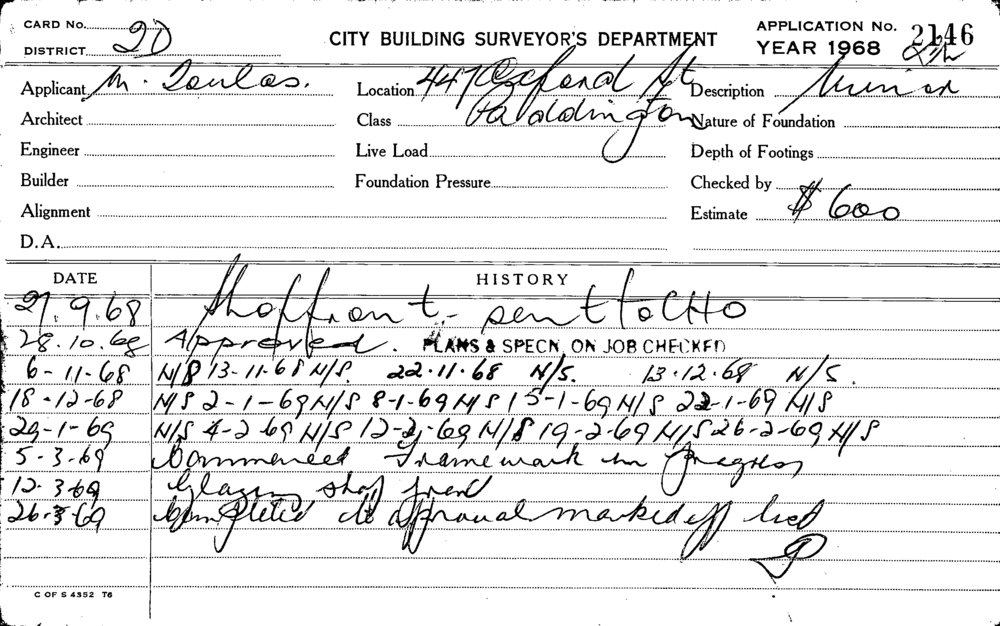 CARD No.
DISTRICT 2D
CITY BUILDING SURVEYOR'S DEPARTMENT
APPLICATION No. 2146
YEAR 1968
Applicant M. Doulas.
Location 447 Oxford St
Paddington
Description Minor
Architect
Class
Nature of Foundation
Engineer
Live Load
Depth of Footings
Builder
Foundation Pressure
Checked by
Alignment
Estimate $600
D.A.
DATE HISTORY
27.9.68 Shopfront - sent to CHO
28.10.68 Approved. PLANS & SPECN. ON JOB CHECKED
6-11-68 N/S 13-11-68 N/S. 22.11.68 N/S. 13.12.68 N/S.
18-12-68 N/S 2-1-69 N/S 8-1-69 N/S 15-1-69 N/S 22-1-69 N/S
29-1-69 N/S 4-2-69 N/S 12-2-69 N/S 19-2-69 N/S 26-2-69 N/S
5-3-69 Commenced Framework in progress
12-3-69 Glazing shop front
26-3-69 Completed as approval marked off list
C OF S 4352 T6